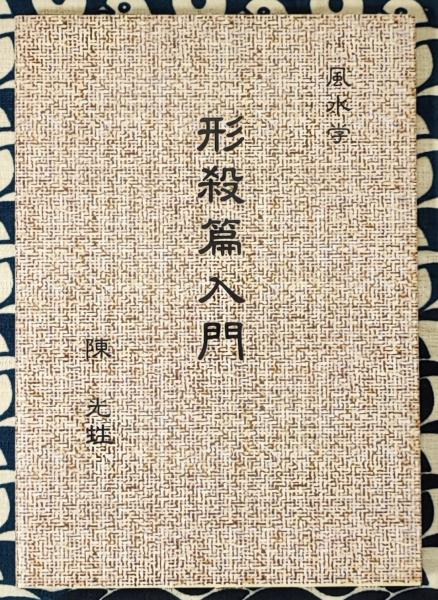 風水学
形殺篇入門
陳 光蛙